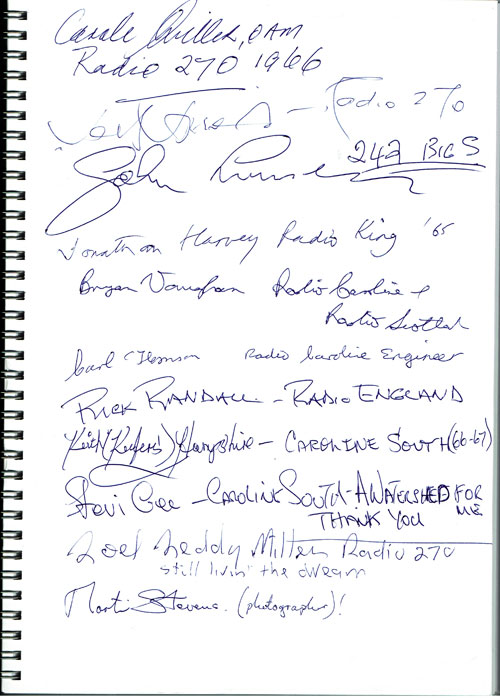 Carole Miller, OAM
Radio 270 1966
– Radio 270
John
242 BIG S
Jonathan Harvey Radio King '65
Bryan Vaughan Radio Caroline &
Radio Scotland
Carl Thomson Radio Caroline Engineer
RICK RANDALL – RADIO ENGLAND
Keith ("Keefers") Hampshire – CAROLINE SOUTH (66-67)
Stevi Gee – CAROLINE SOUTH – A WATERSHED FOR ME
THANK YOU
Leddy Radio 270
still livin' the dream
Martin Stevens. (photographer)!